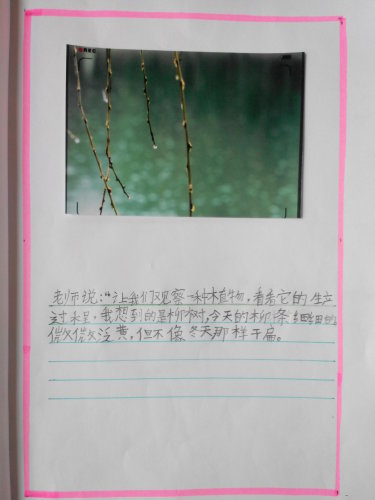 老师说:“让我们观察一种植物,看看它的生产
过程,我想到的是柳树,今天的柳条细细的
微微泛黄,但不像冬天那样干扁。